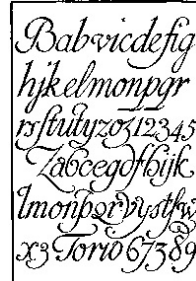 Babvicdefig
hjkelmonpqr
rsstutyzoz12345
Zabcegdfhijk
lmonpqrvystfw
xz Torio 67389